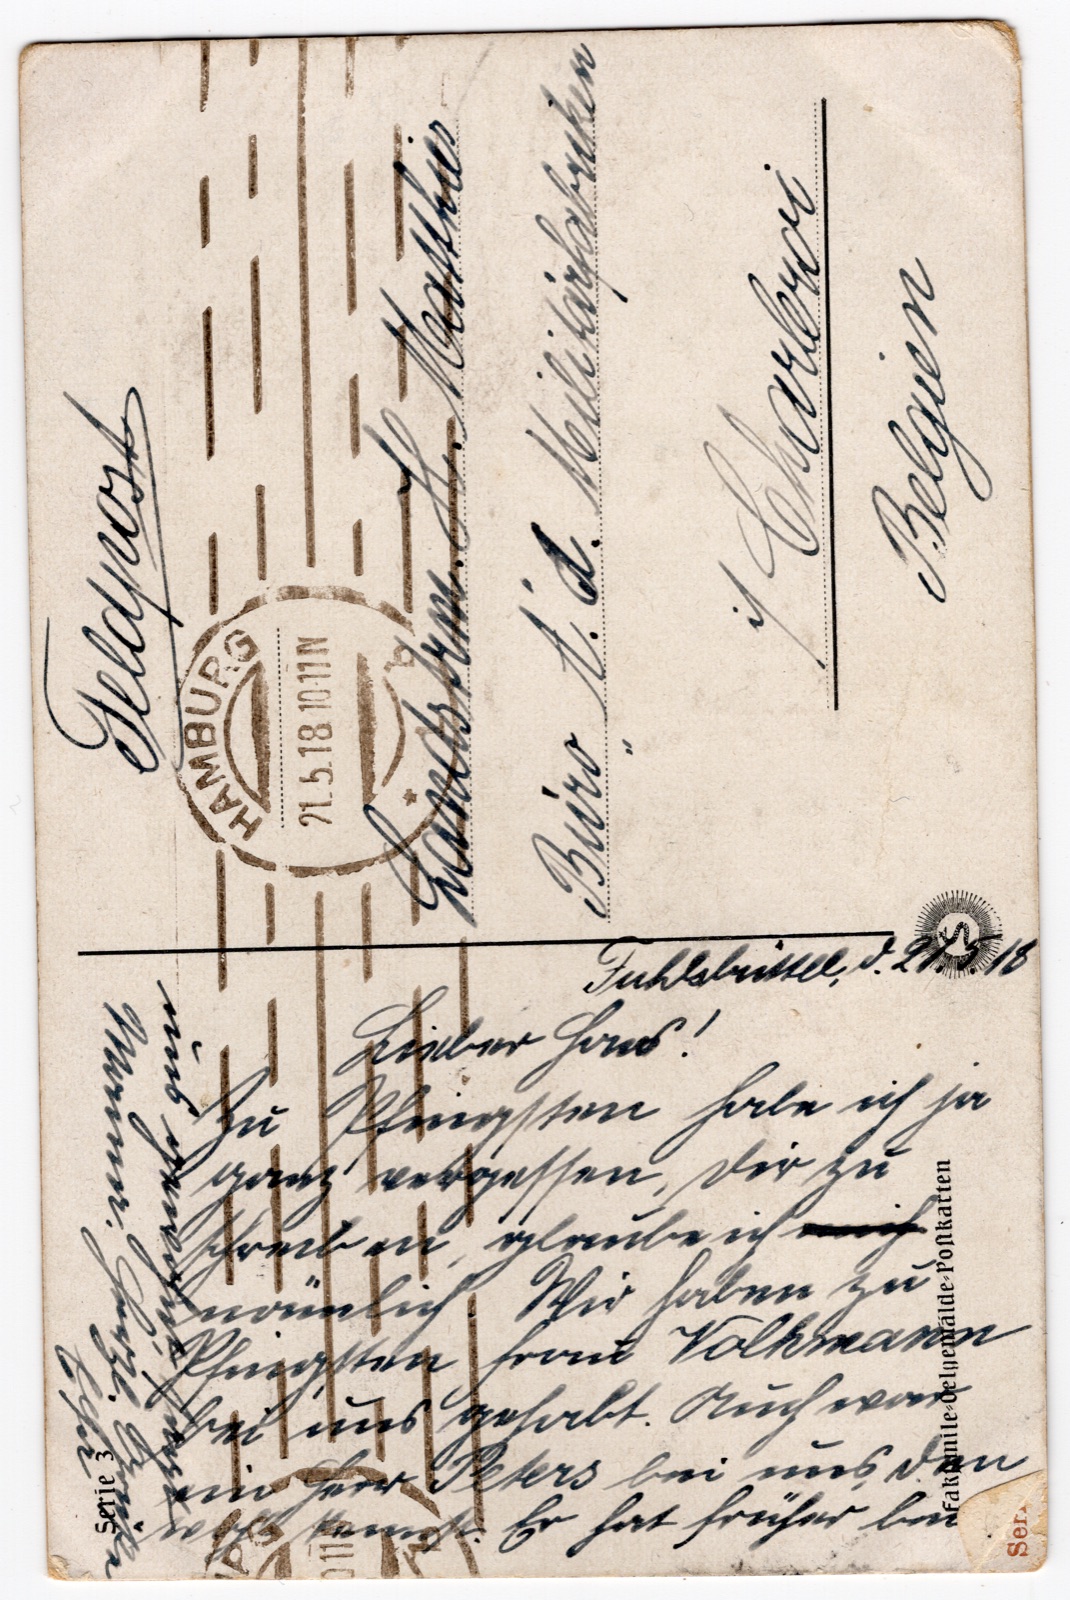 Feldpost
HAMBURG
21.5.18 10-11 N
Landstrm. H. Matthies
Büro k. d. Militärfabriken
if Charleroi
Belgien
Fuhlsbüttel, d. 21.5.18
Lieber Hans!
Zu Pfingsten habe ich ja
ganz vergessen, Dir zu
schreiben, glaube ich
nämlich. Wir haben zu
Pfingsten Frau Volkmann
bei uns gehabt. Auch war
ein Herr Peters bei uns, den
wohl kennst. Er hat früher bei
gewohnt
Herzl. Grüße
Serie 3
Faksimile-Oelgemälde-Postkarten
Ser.